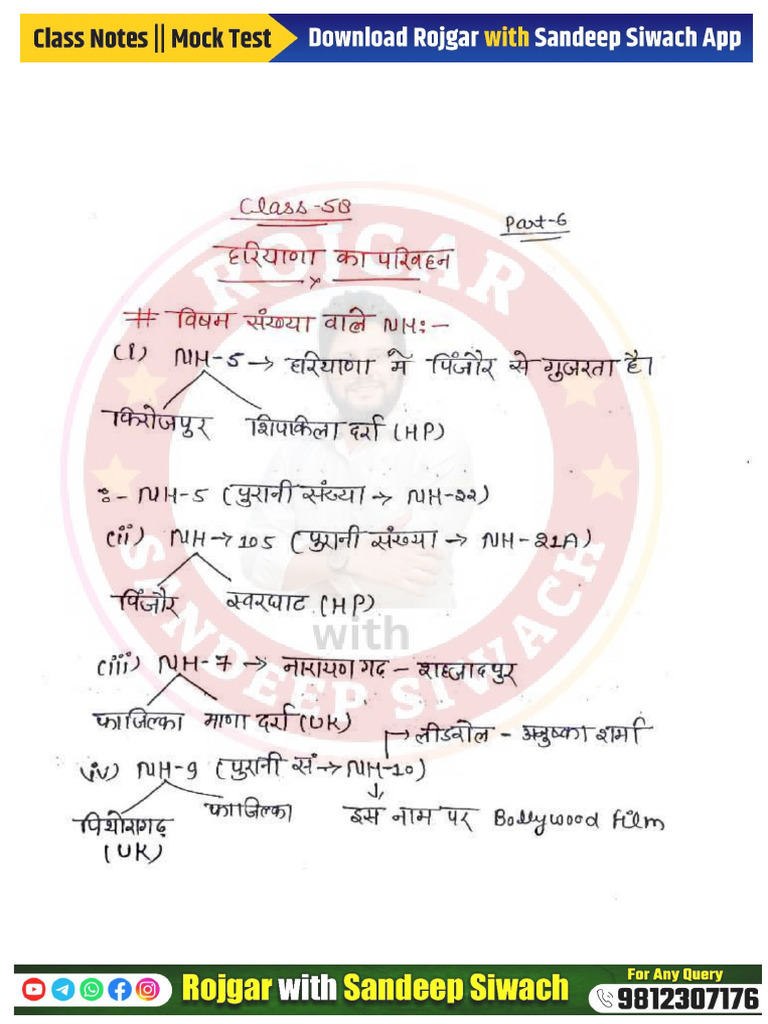 Class Notes || Mock Test
Download Rojgar with Sandeep Siwach App
Class-58
Part-6
हरियाणा का परिवहन
# विषम संख्या वाले NH:-
(i) NH-5 → हरियाणा में पिंजौर से गुजरता है।
फिरोजपुर शिपकिला दर्रा (HP)
:- NH-5 (पुरानी संख्या → NH-22)
(ii) NH→105 (पुरानी संख्या → NH-21A)
पिंजौर स्वरघाट (HP)
(iii) NH-7 → नारायणगढ़ - शहजादपुर
फाजिल्का माणा दर्रा (UK)
लीडरोल - अनुष्का शर्मा
(iv) NH-9 (पुरानी सं → NH-10)
पिथौरागढ़ (UK) फाजिल्का
इस नाम पर Bollywood film
ROJGAR
with
SANDEEP SIWACH
Rojgar with Sandeep Siwach
For Any Query
9812307176